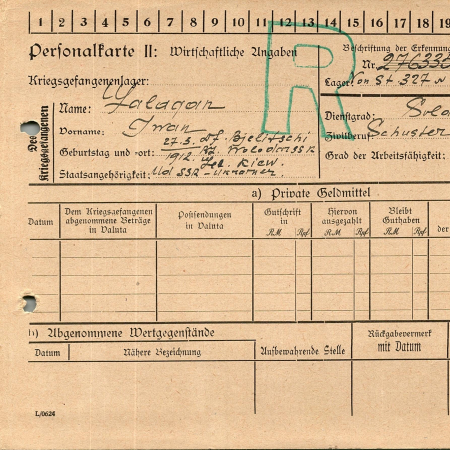 1 2 3 4 5 6 7 8 9 10 11 12 13 14 15 16 17 18 19
R
Personalkarte II: Wirtschaftliche Angaben
Beschriftung der Erkennung
Nr. 276335
Kriegsgefangenenlager:
Lager: Von St 327
Des Kriegsgefangenen
Name: Galagan
Dienstgrad: Sold
Vorname: Iwan
Zivilberuf: Schuster
Geburtstag und -ort: 27.5. 1912.
Geb. Kiew.
Grad der Arbeitsfähigkeit:
Staatsangehörigkeit: UdSSR - Ukrainer
a) Private Geldmittel
Datum
Dem Kriegsgefangenen abgenommene Beträge in Valuta
Postsendungen in Valuta
Gutschrift in
RM Rpf.
Hiervon ausgezahlt
RM Rpf.
Bleibt Guthaben
RM Rpf.
der
b) Abgenommene Wertgegenstände
Datum
Nähere Bezeichnung
Aufbewahrende Stelle
Rückgabevermerk mit Datum
L/0624